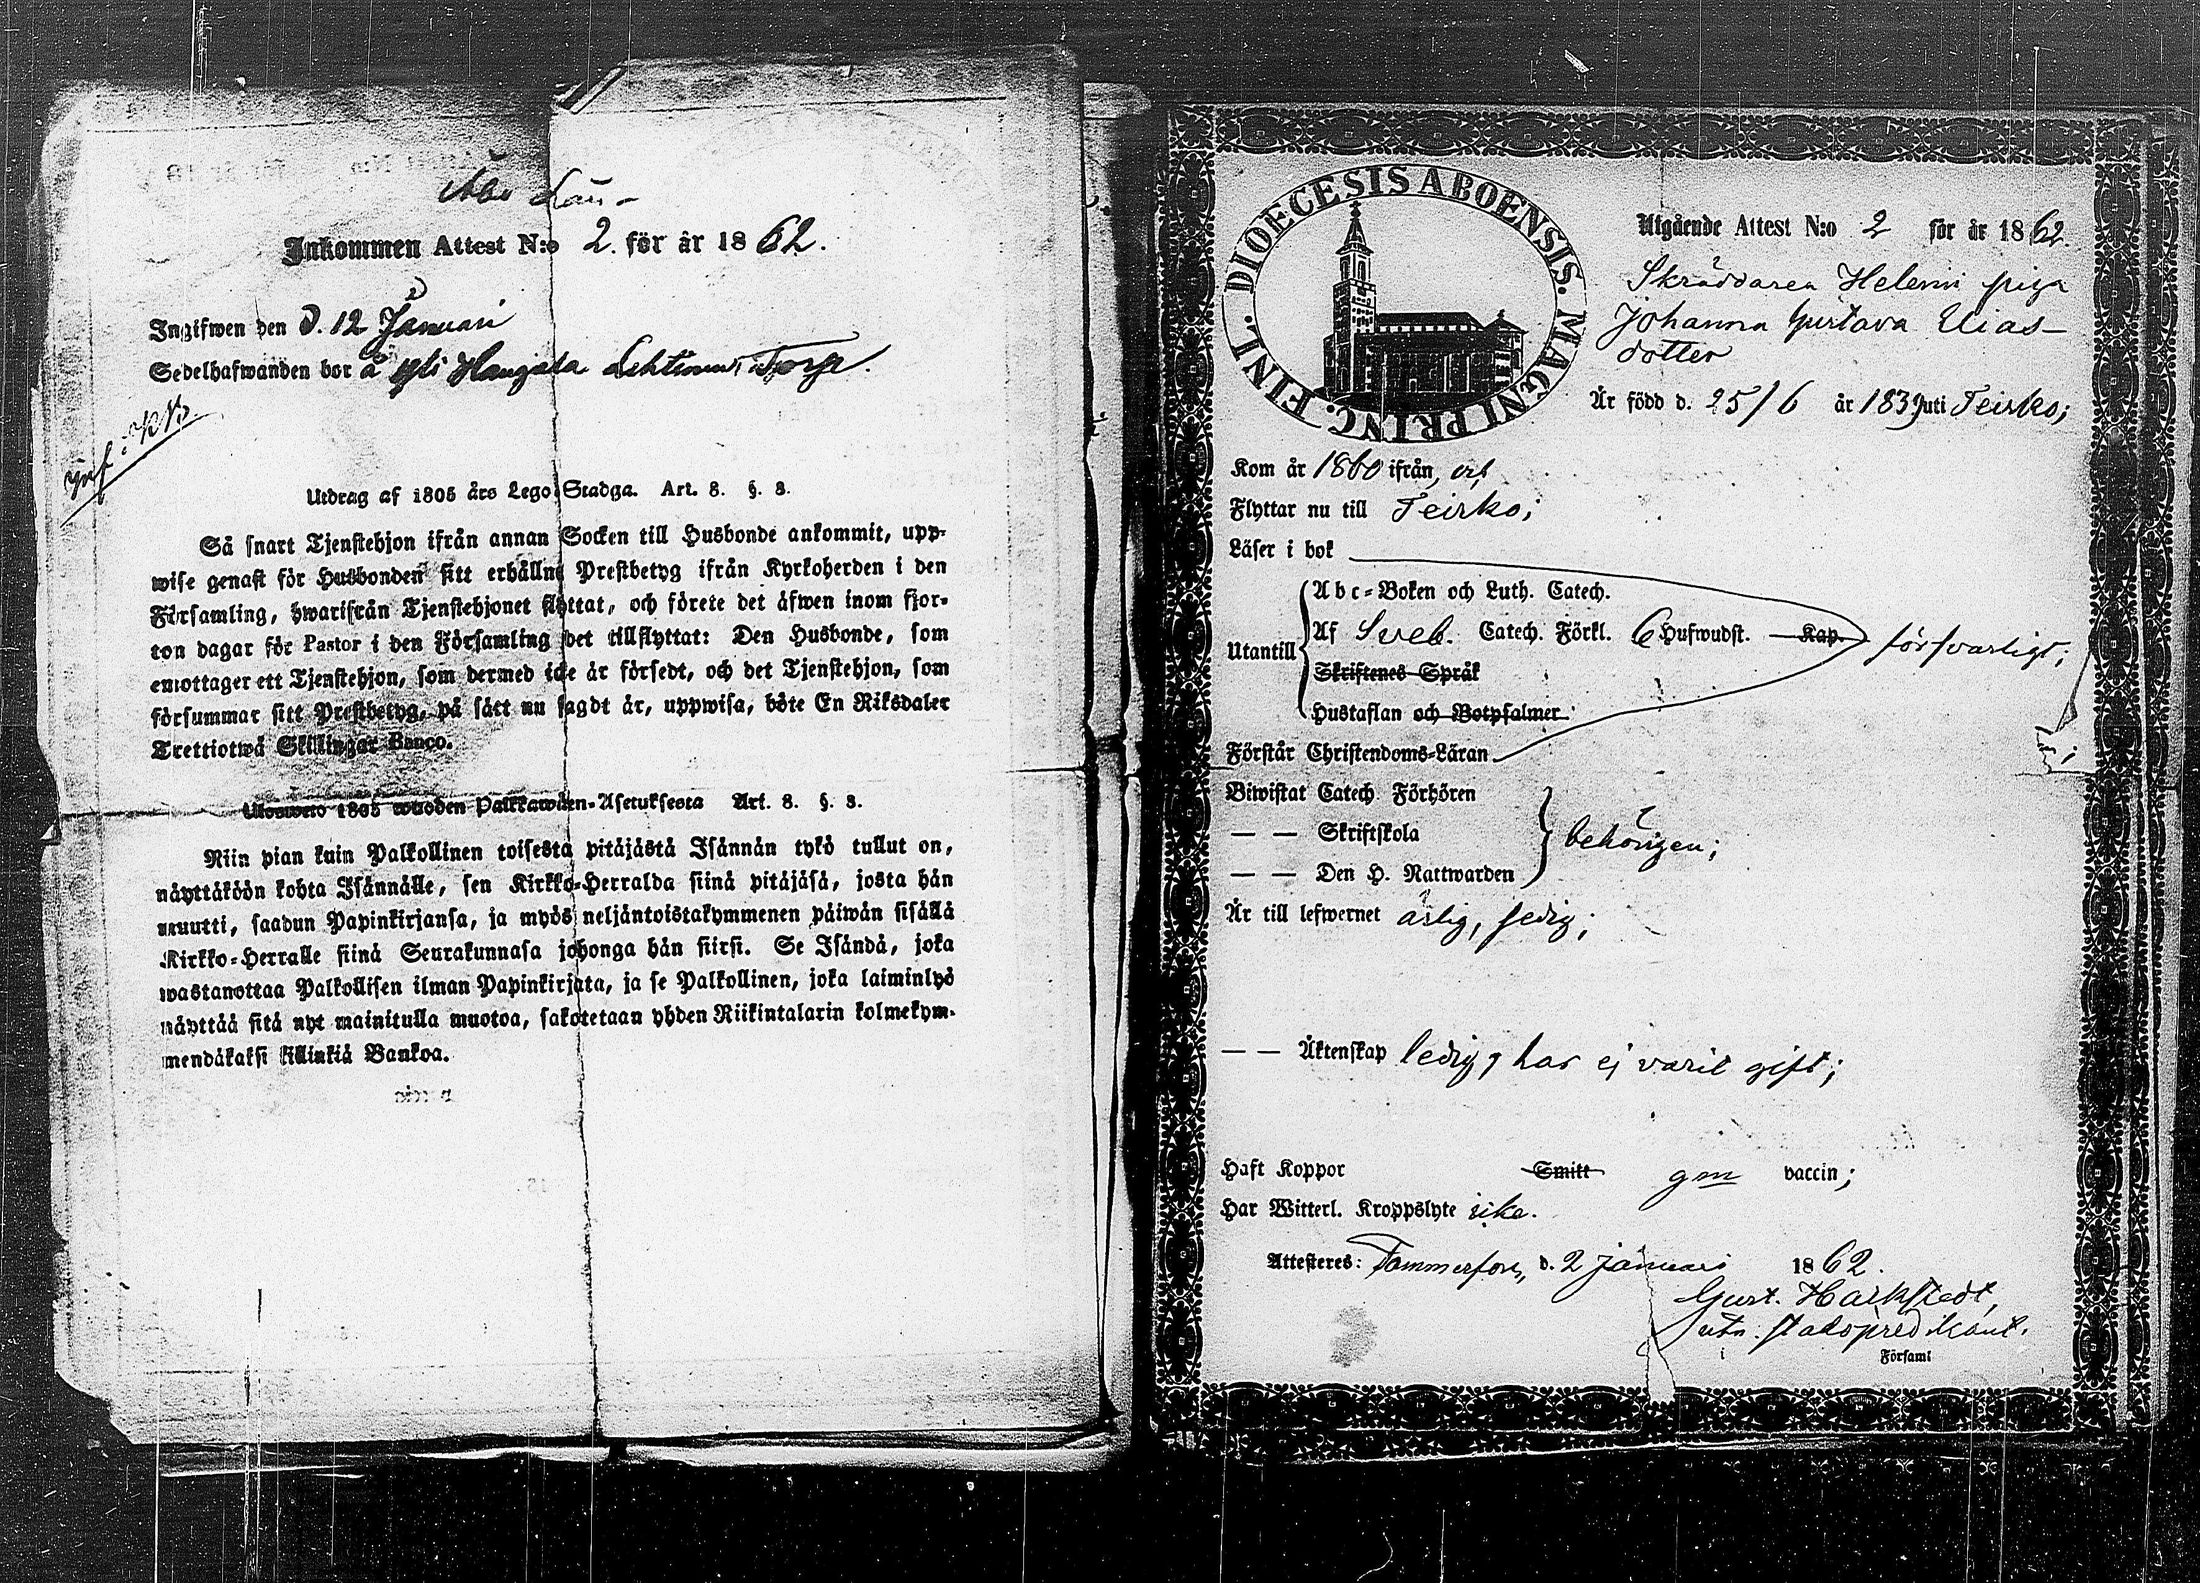 Åbo Län
Inkommen Attest N:o 2. för år 1862.
Ingifwen den d. 12 Januari
Sedelhafwanden bor å Yli Haugala Torp.
Utdrag af 1805 års Lego-Stadga. Art. 8. §. 8.
Så snart Tjenstehjon ifrån annan Socken till Husbonde ankommit, upp-
wise genast för Husbonden sitt erhållne Prestbetyg ifrån Kyrkoherden i den
Församling, hwarifrån Tjenstehjonet flyttat, och förete det äfwen inom fjor-
ton dagar för Pastor i den Församling det tillflyttat: Den Husbonde, som
emottager ett Tjenstehjon, som dermed icke är försedt, och det Tjenstehjon, som
försummar sitt Prestbetyg, på sätt nu sagdt är, uppwisa, böte En Riksdaler
Trettiotwå Skillingar Banco.
Ulosweto 1805 wuoden Palkkawäen-Asetuksesta Art. 8. §. 8.
Niin pian kuin Palkollinen toisesta pitäjästä Isännän tykö tullut on,
näyttäköön kohta Isännälle, sen Kirkko-Herralda siinä pitäjäsä, josta hän
muutti, saadun Papinkirjansa, ja myös neljäntoistakymmenen päiwän sisällä
Kirkko-Herralle siinä Seurakunnasa johonga hän siirsi. Se Isändä, joka
wastanottaa Palkollisen ilman Papinkirjata, ja se Palkollinen, joka laiminlyö
näyttää sitä nyt mainitulla muotoa, sakotetaan yhden Riikintalarin kolmekym-
mendäkaksi killinkiä Bankoa.
DIOECESIS ABOENSIS. MAGNI PRINC. FINL.
Utgående Attest N:o 2 för år 1862
Skräddaren Helenii piga
Johanna Gustava Elias-
dotter
Är född d. 25/6 år 1839 uti Teisko;
Kom år 1860 ifrån,
Flyttar nu till Teisko;
Läser i bok
Abc-Boken och Luth. Catech.
Utantill Af Sveb. Catech. Förkl. 6 Hufwudst. Kap. försvarligt;
Skriftenes Språk
Hustaflan och Botpsalmer
Förstår Christendoms-Läran
Biwistat Catech Förhören
— — Skriftskola behörigen;
— — Den H. Nattwarden
Är till lefwernet ärlig, fredig;
— — Äktenskap ledig, har ej varit gift;
Haft Koppor Smitt gm vaccin;
Har Witterl. Kroppslyte icke.
Attesteres: Tammerfors, d. 2 januari 1862.
Gust. Harkstedt,
stadspredikant.
Församl